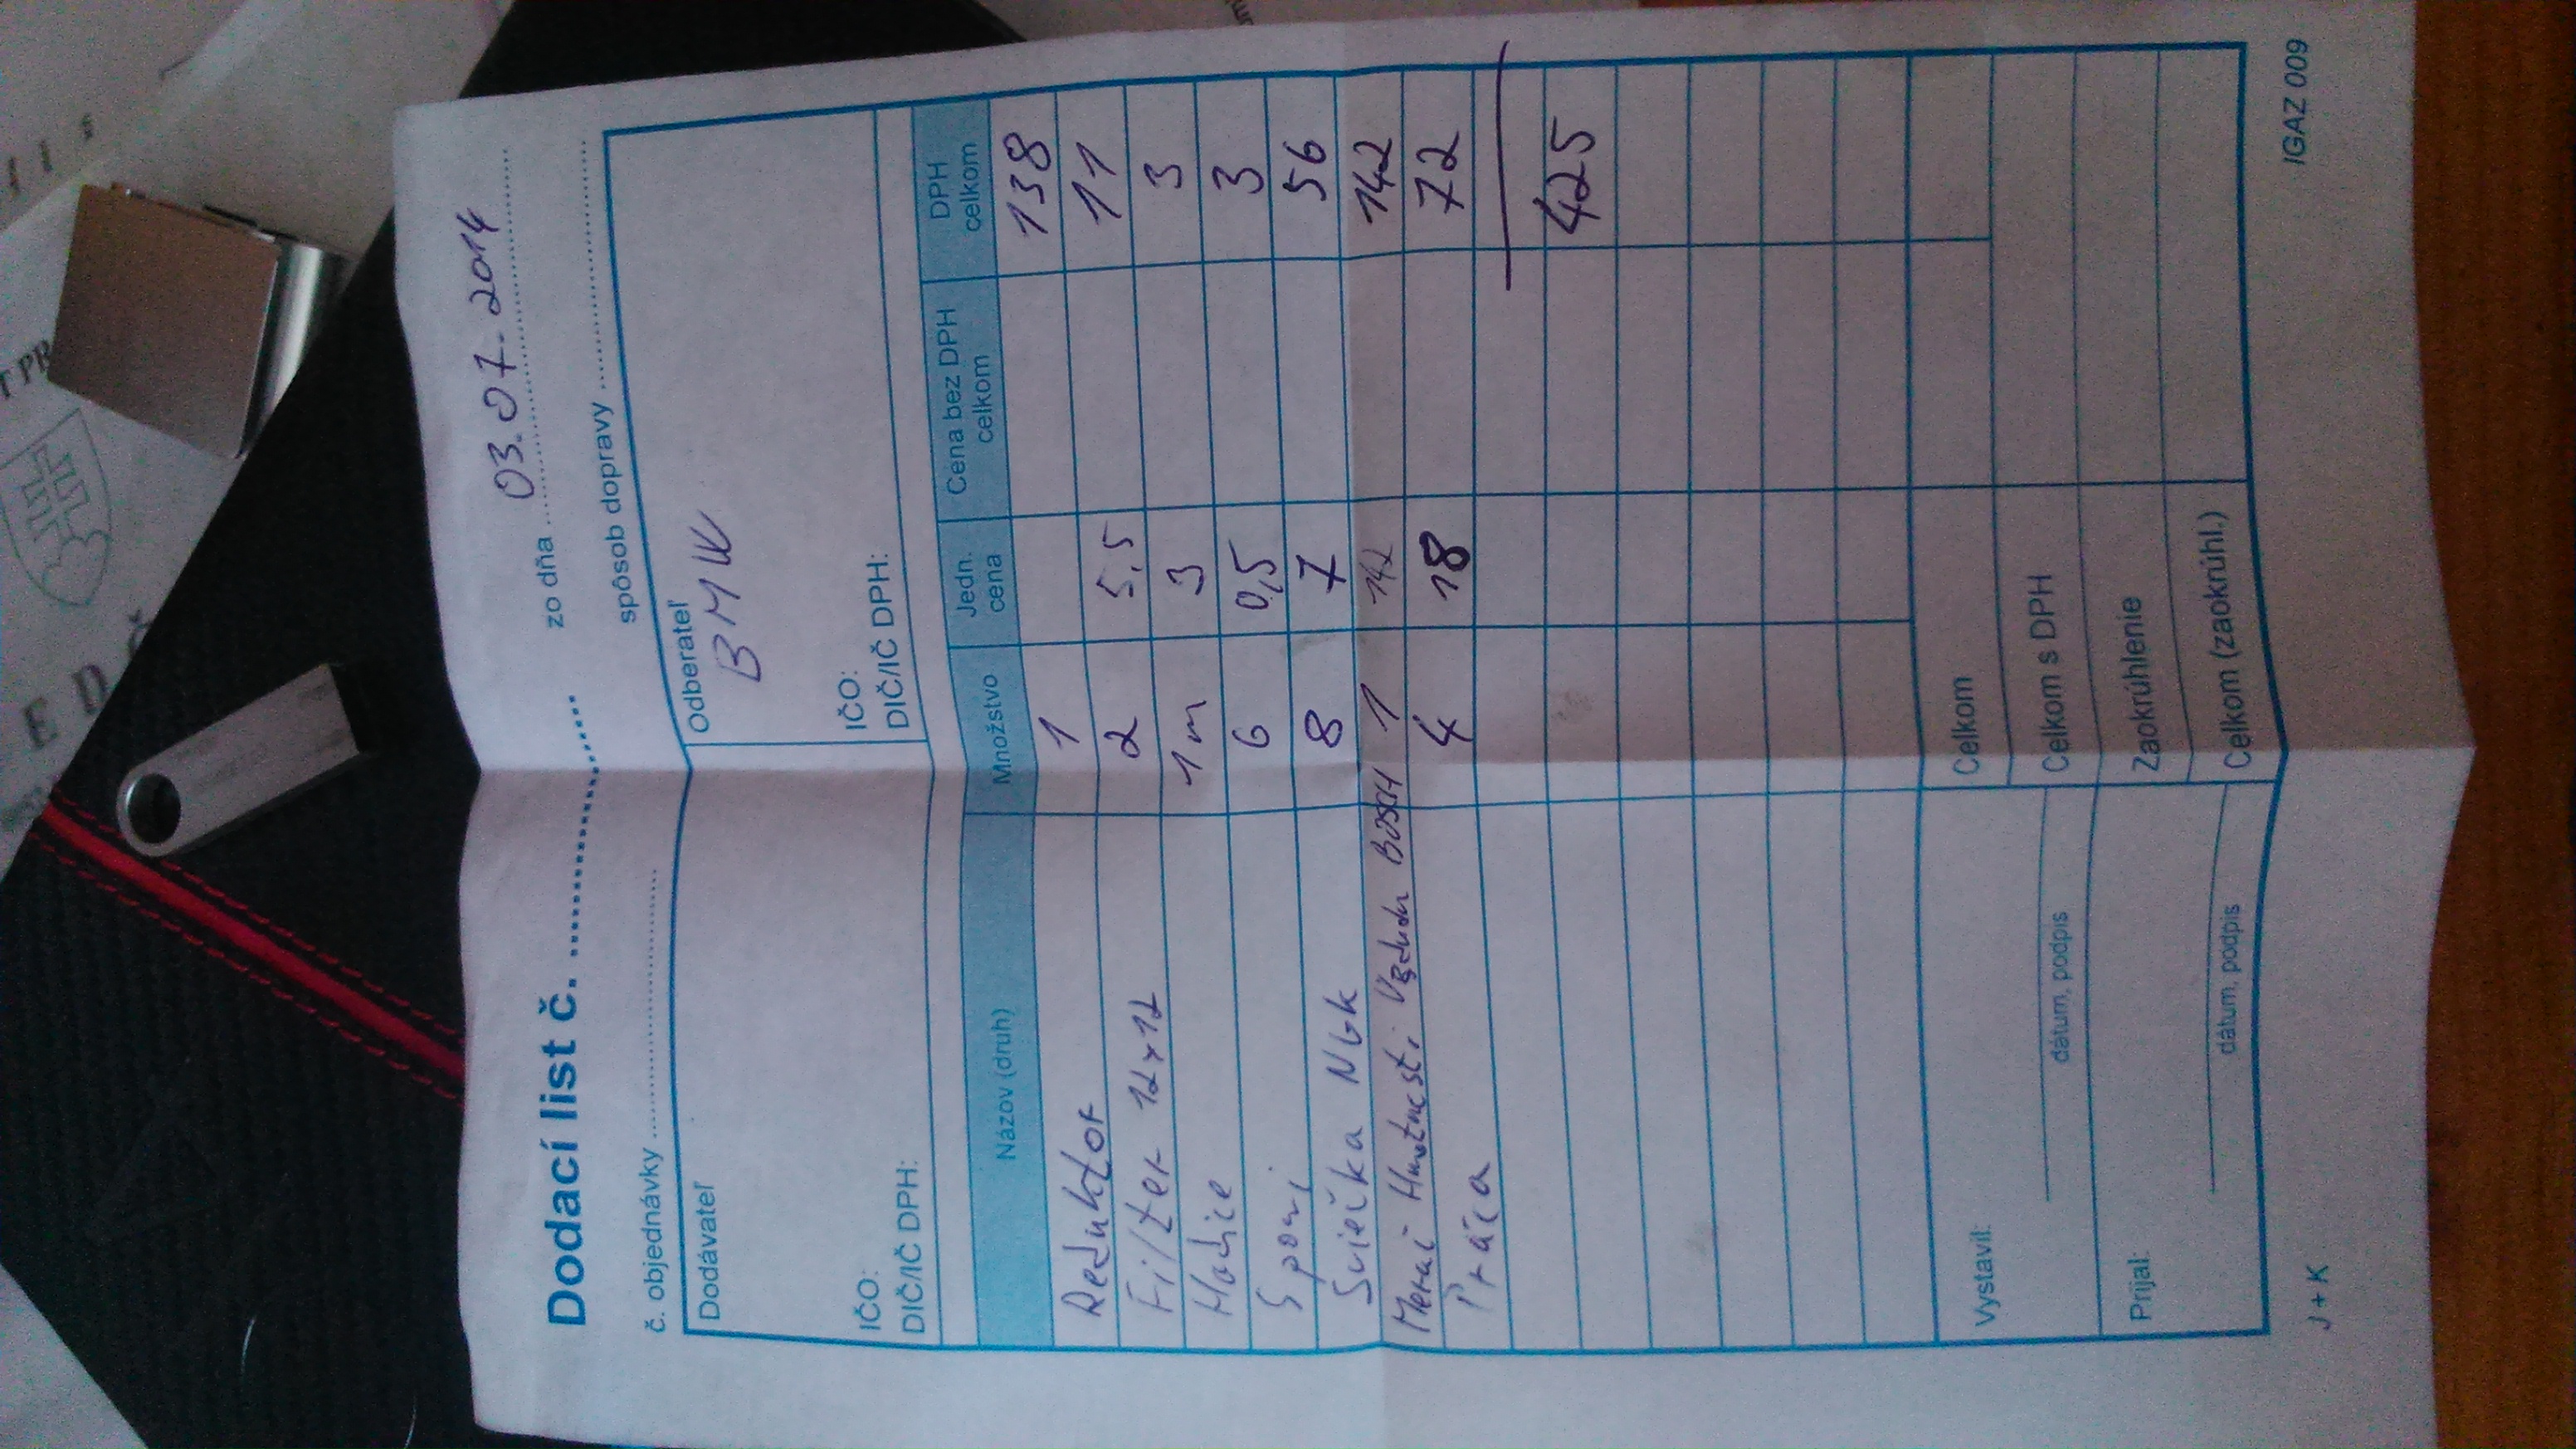 Dodací list č. ........................ zo dňa 03.07.2014
č. objednávky ........................ spôsob dopravy ........................
Dodávateľ Odberateľ
BMW
IČO: IČO:
DIČ/IČ DPH: DIČ/IČ DPH:
Názov (druh) Množstvo Jedn. cena Cena bez DPH celkom DPH celkom
Reduktor 1 138
Filter 12x12 2 5,5 11
Hadice 1m 3 3
Spony 6 0,5 3
Sviečka NGK 8 7 56
Merač Hmotnosti Vzduchu BOSCH 1 142 142
Práca 4 18 72
425
Vystavil: Celkom
dátum, podpis Celkom s DPH
Prijal: Zaokrúhlenie
dátum, podpis Celkom (zaokrúhl.)
J + K IGAZ 009